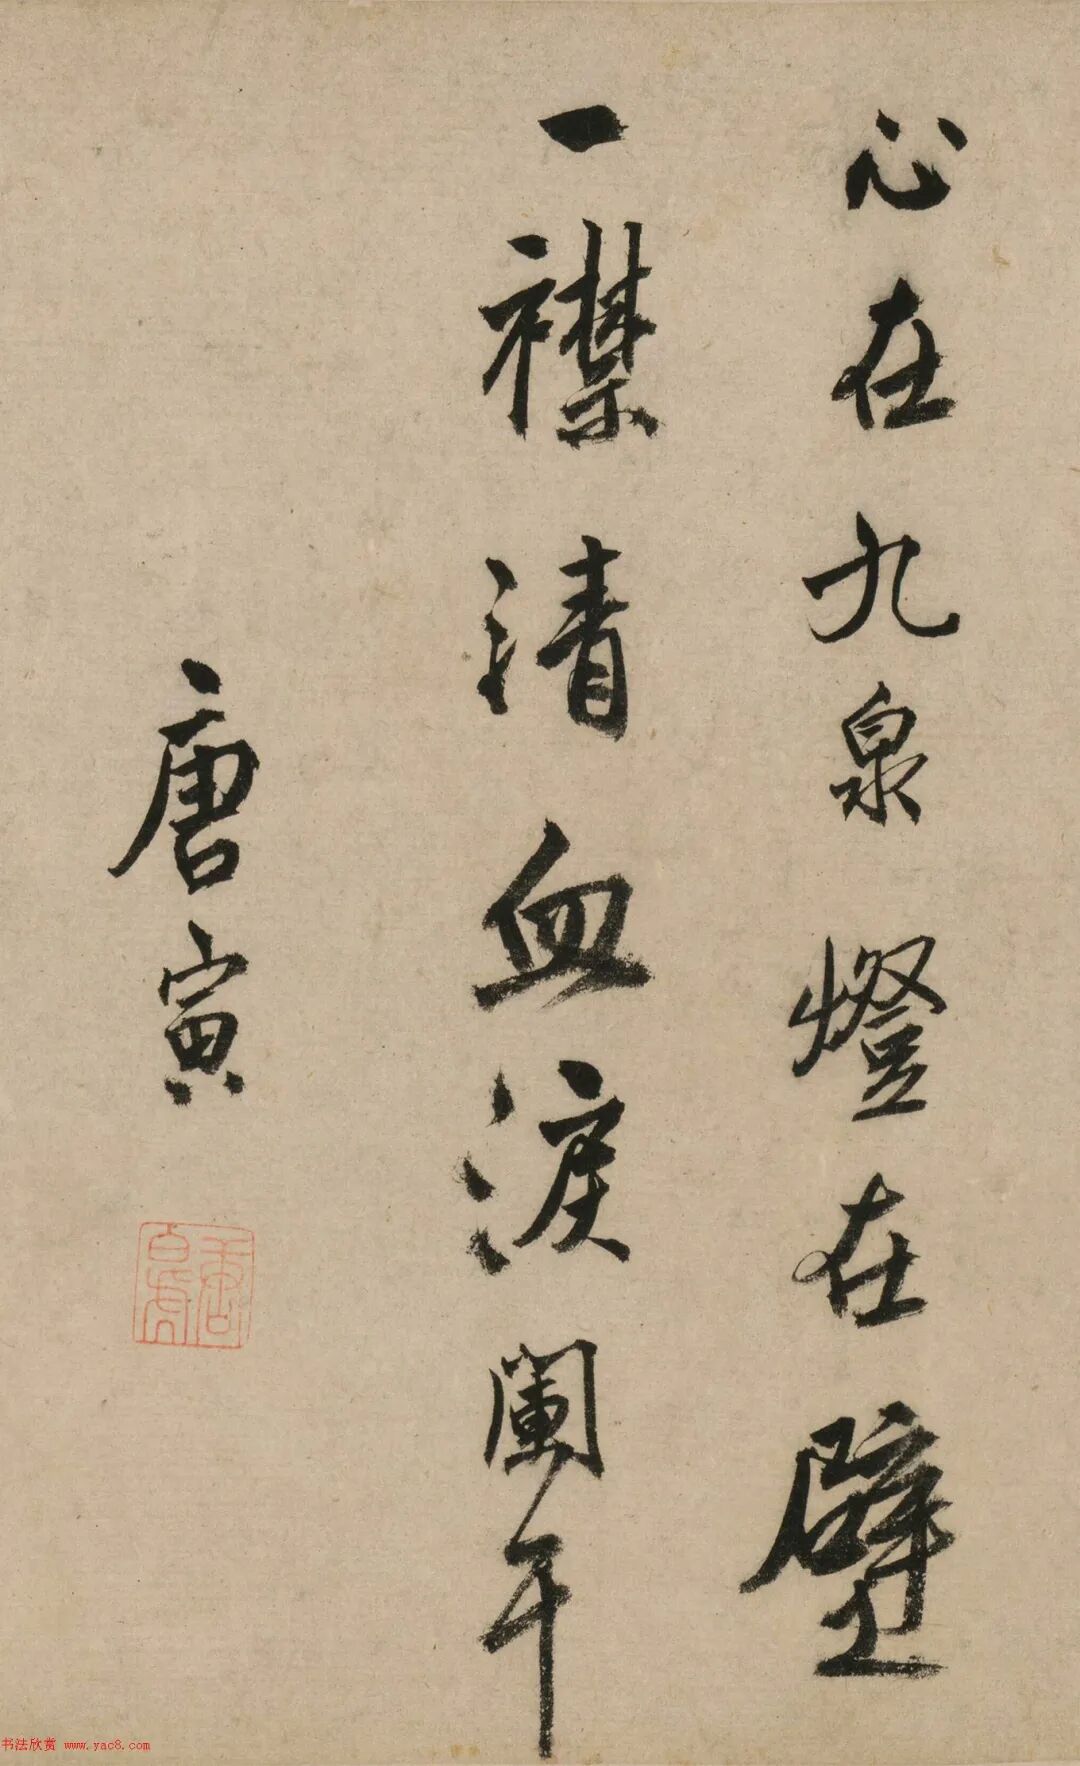 心在九泉燈在壁
一襟清血淚闌干
唐寅
唐白虎
书法欣赏 www.yac8.com